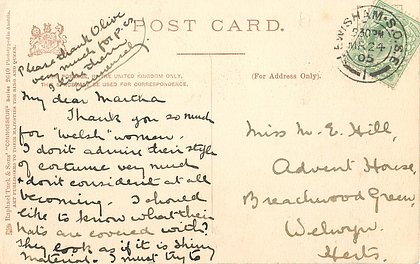 Please thank Olive
very much for p.c.
POST CARD.
FOR THE UNITED KINGDOM ONLY,
BE USED FOR CORRESPONDENCE.
(For Address Only.)
LEWISHAM·S.O·S.E
5.30PM
MR 24
05
My dear Martha
Thank you so much
for "Welsh" women.
I don't admire their style
of costume very much
don't consider at all
becoming. I should
like to know what their
hats are covered with?
They look as if it is shiny
material. I must try to
Miss M. E. Hill,
Advent House,
Breachwood Green,
Welwyn.
Herts.
Raphael Tuck & Sons' "CONNOISSEUR" Series 2549
ART PUBLISHERS TO THEIR MAJESTIES THE KING AND QUEEN.